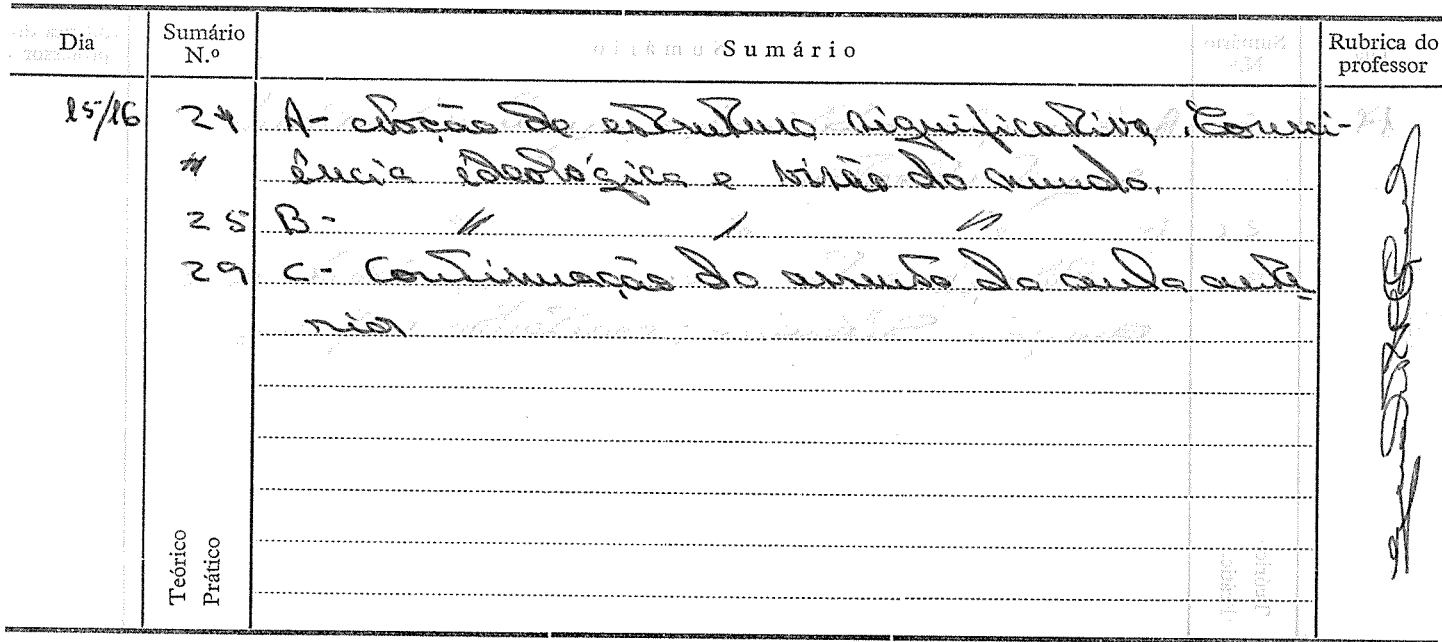 Dia Sumário N.º Sumário Rubrica do professor
15/16 24 A- Noção de estrutura significativa. Consci-
" ência ideológica e visão do mundo.
25 B- " / "
29 C- Continuação do assunto da aula ante-
rior
Teórico
Prático